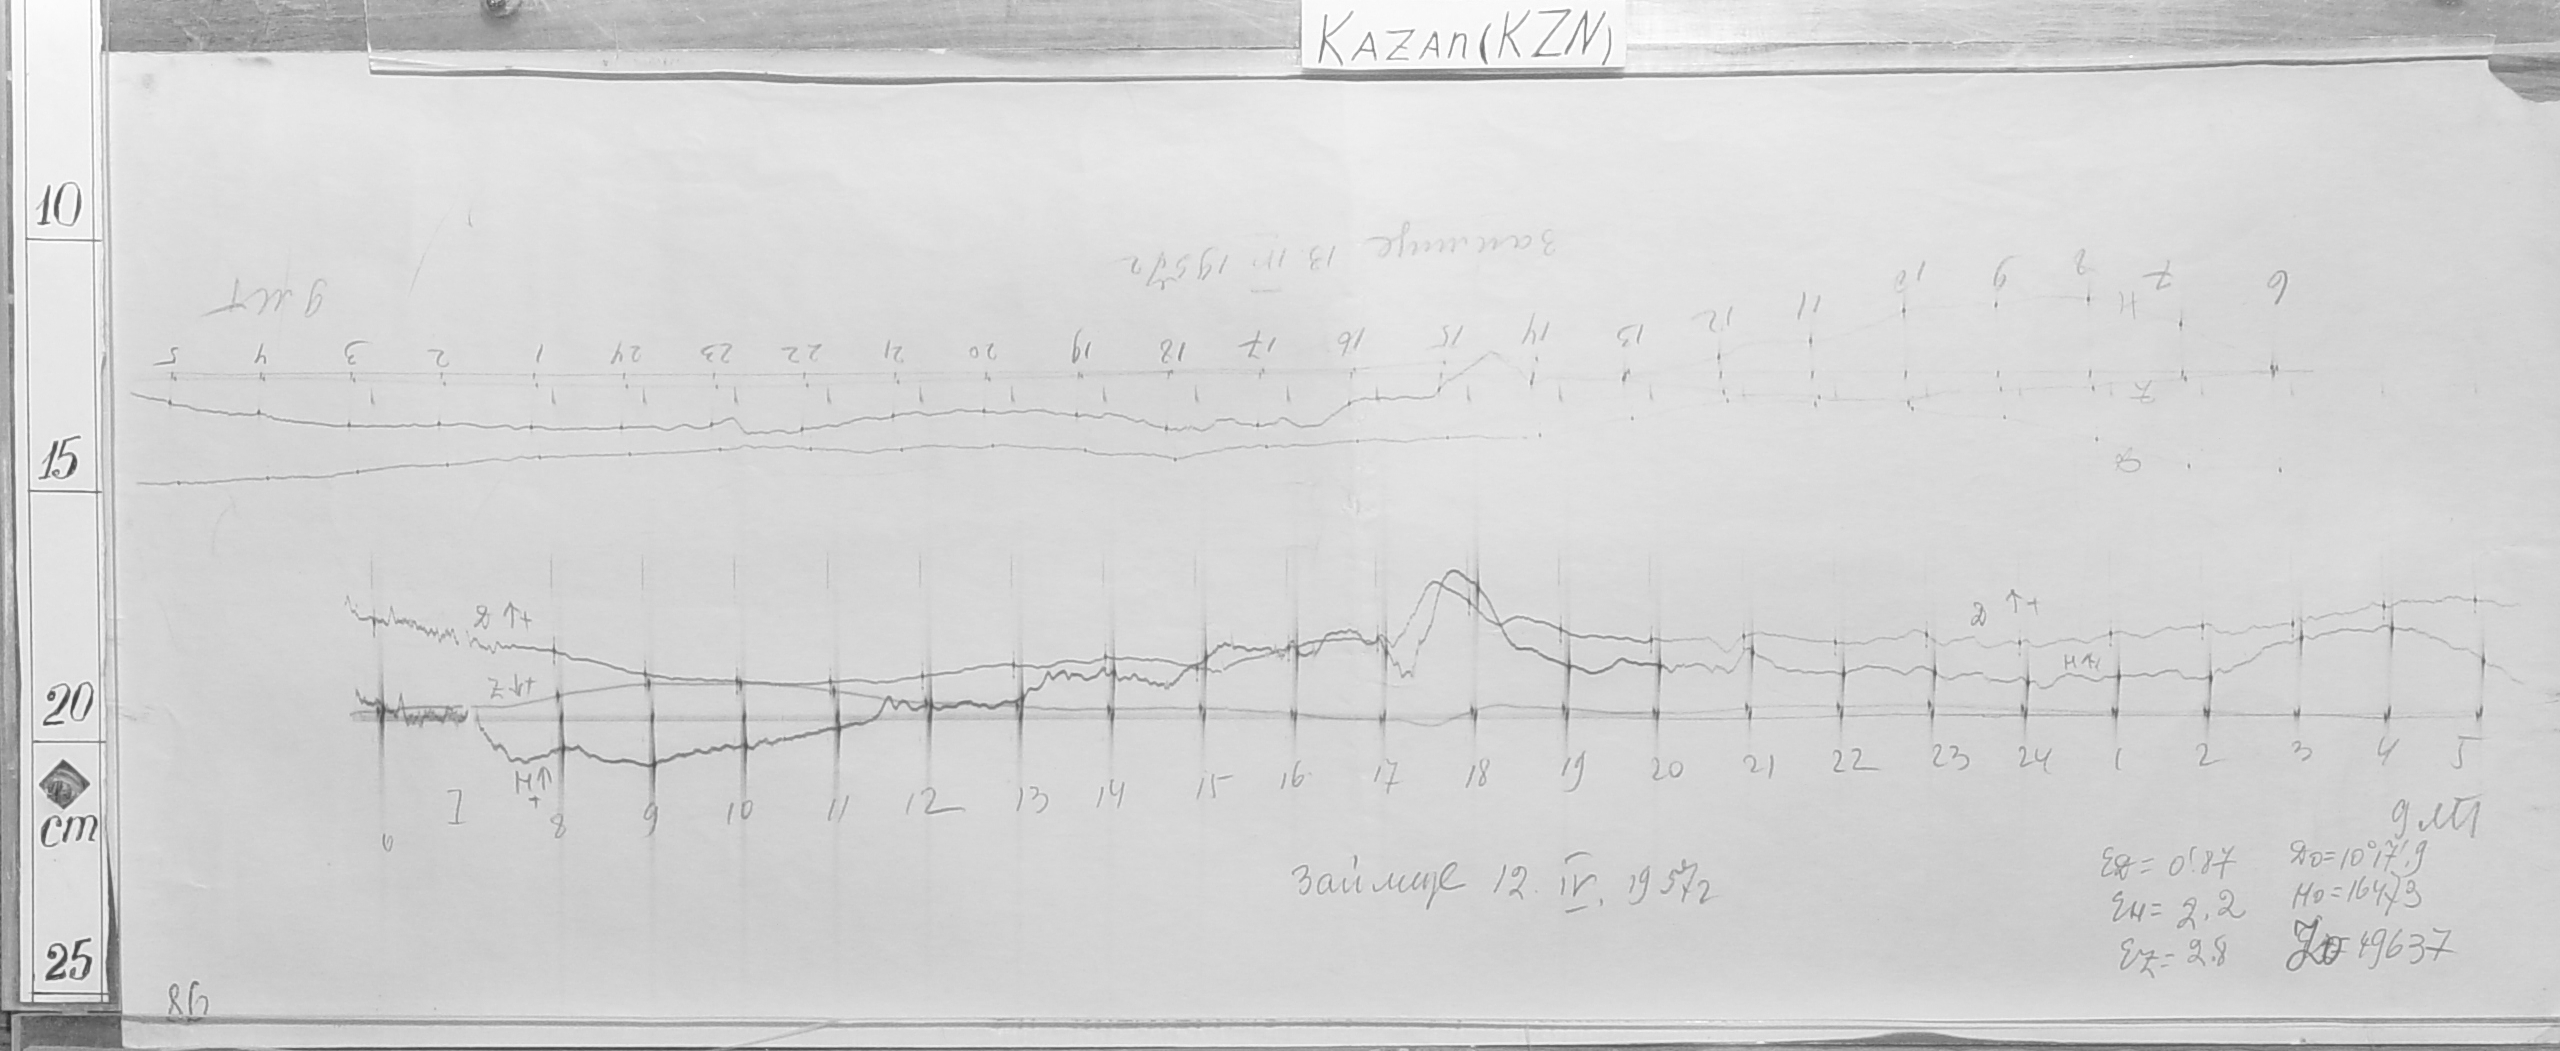 KAZAn(KZN)
10
15
20
cm
25
Займище 13 1957г
5 4 3 2 1 24 23 22 21 20 19 18 17 16 15 14 13 12 11 10 9 8 7 6
H
Z
D
D ↑+
Z ↓+
H↑
+
D ↑+
H↑
6 7 8 9 10 11 12 13 14 15 16 17 18 19 20 21 22 23 24 1 2 3 4 5
Займище 12. IV. 1957г
ED = 0!87 D0=10°17'.9
EH= 2.2 H0=16473
EZ= 2.8 Z0 49637
86